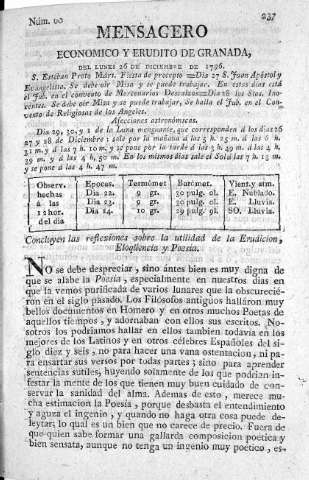 Núm. 60 237
MENSAGERO
ECONOMICO Y ERUDITO DE GRANADA,
DEL LUNES 26 DE DICIEMBRE DE 1796.
S. Esteban Proto Márt. Fiesta de precepto =Dia 27 S. Juan Apóstol y
Evangelista. Se debe oir Misa y se puede trabajar. En estos dias está
el Jub. en el convento de Mercenarias Descalzas=Dia 28 los Stos. Ino-
centes. Se debe oir Misa y se puede trabajar, Se halla el Jub. en el Con-
vento de Religiosas de los Angeles.
Afecciones astronómicas.
Dia 29, 30, y 1 de la Luna menguante, que corresponden á los dias 26
27 y 28 de Diciembre: sale por la mañana á las 5 h. 23 m. á las 6 h.
31 m. y á las 7 h. 10 m. y se pone por la tarde á las 3 h. 49 m. á las 4 h.
39 m. y á las 4 h. 50 m. En los mismos dias sale el Sol á las 7 h. 13 m.
y se pone á las 4 h. 47 m.
Observ. Epoces. Termómet Barómet. Vient. y atm.
hechas Dia 22. 9 gr. 30 pulg. ol. E. Nublado.
á las Dia 23. 9 gr. 30 pulg. ol. E. Lluvia.
12 hor. Dia 24. 10 gr. 29 pulg. 9l. SO. Lluvia.
del dia
Concluyen las reflexiones sobre la utilidad de la Erudicion,
Eloqüencia y Poesia.
No se debe despreciar, sino ántes bien es muy digna de
que se alabe la Poesía, especialmente en nuestros dias en
que la vemos purificada de varios lunares que la obscurecié-
ron en el siglo pasado. Los Filósofos antiguos halláron muy
bellos documentos en Homero y en otros muchos Poetas de
aquellos tiempos, y adornaban con ellos sus escritos. No-
sotros los podriamos hallar en ellos tambien todavia en los
mejores de los Latinos y en otros célebres Españoles del si-
glo diez y seis, no para hacer una vana ostentacion, ni pa-
ra ensartar sus versos por todas partes; sino para aprender
sentencias sutiles, huyendo solamente de los que podrian in-
festar la mente de los que tienen muy buen cuidado de con-
servar la sanidad del alma. Ademas de esto, merece mu-
cha estimacion la Poesía, porque desbasta el entendimiento
y aguza el ingenio, y quando no haga otra cosa puede de-
leytar; lo qual es un bien que no carece de precio. Fuera de
que quien sabe formar una gallarda composicion poética y
bien sensata, aunque no tenga un ingenio muy poético, es-